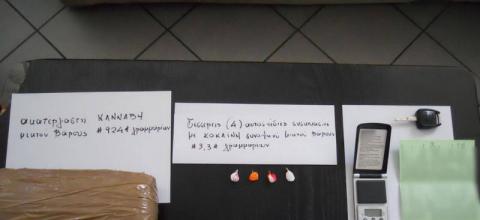 ακατέργαστη ΚΑΝΝΑΒΗ
μικτού βάρους #924# γραμμαρίων
Τέσσερις (4) αυτοτελείς συσκευασίες
με ΚΟΚΑΪΝΗ συνολικού μικτού βάρους
#3,3# γραμμαρίων